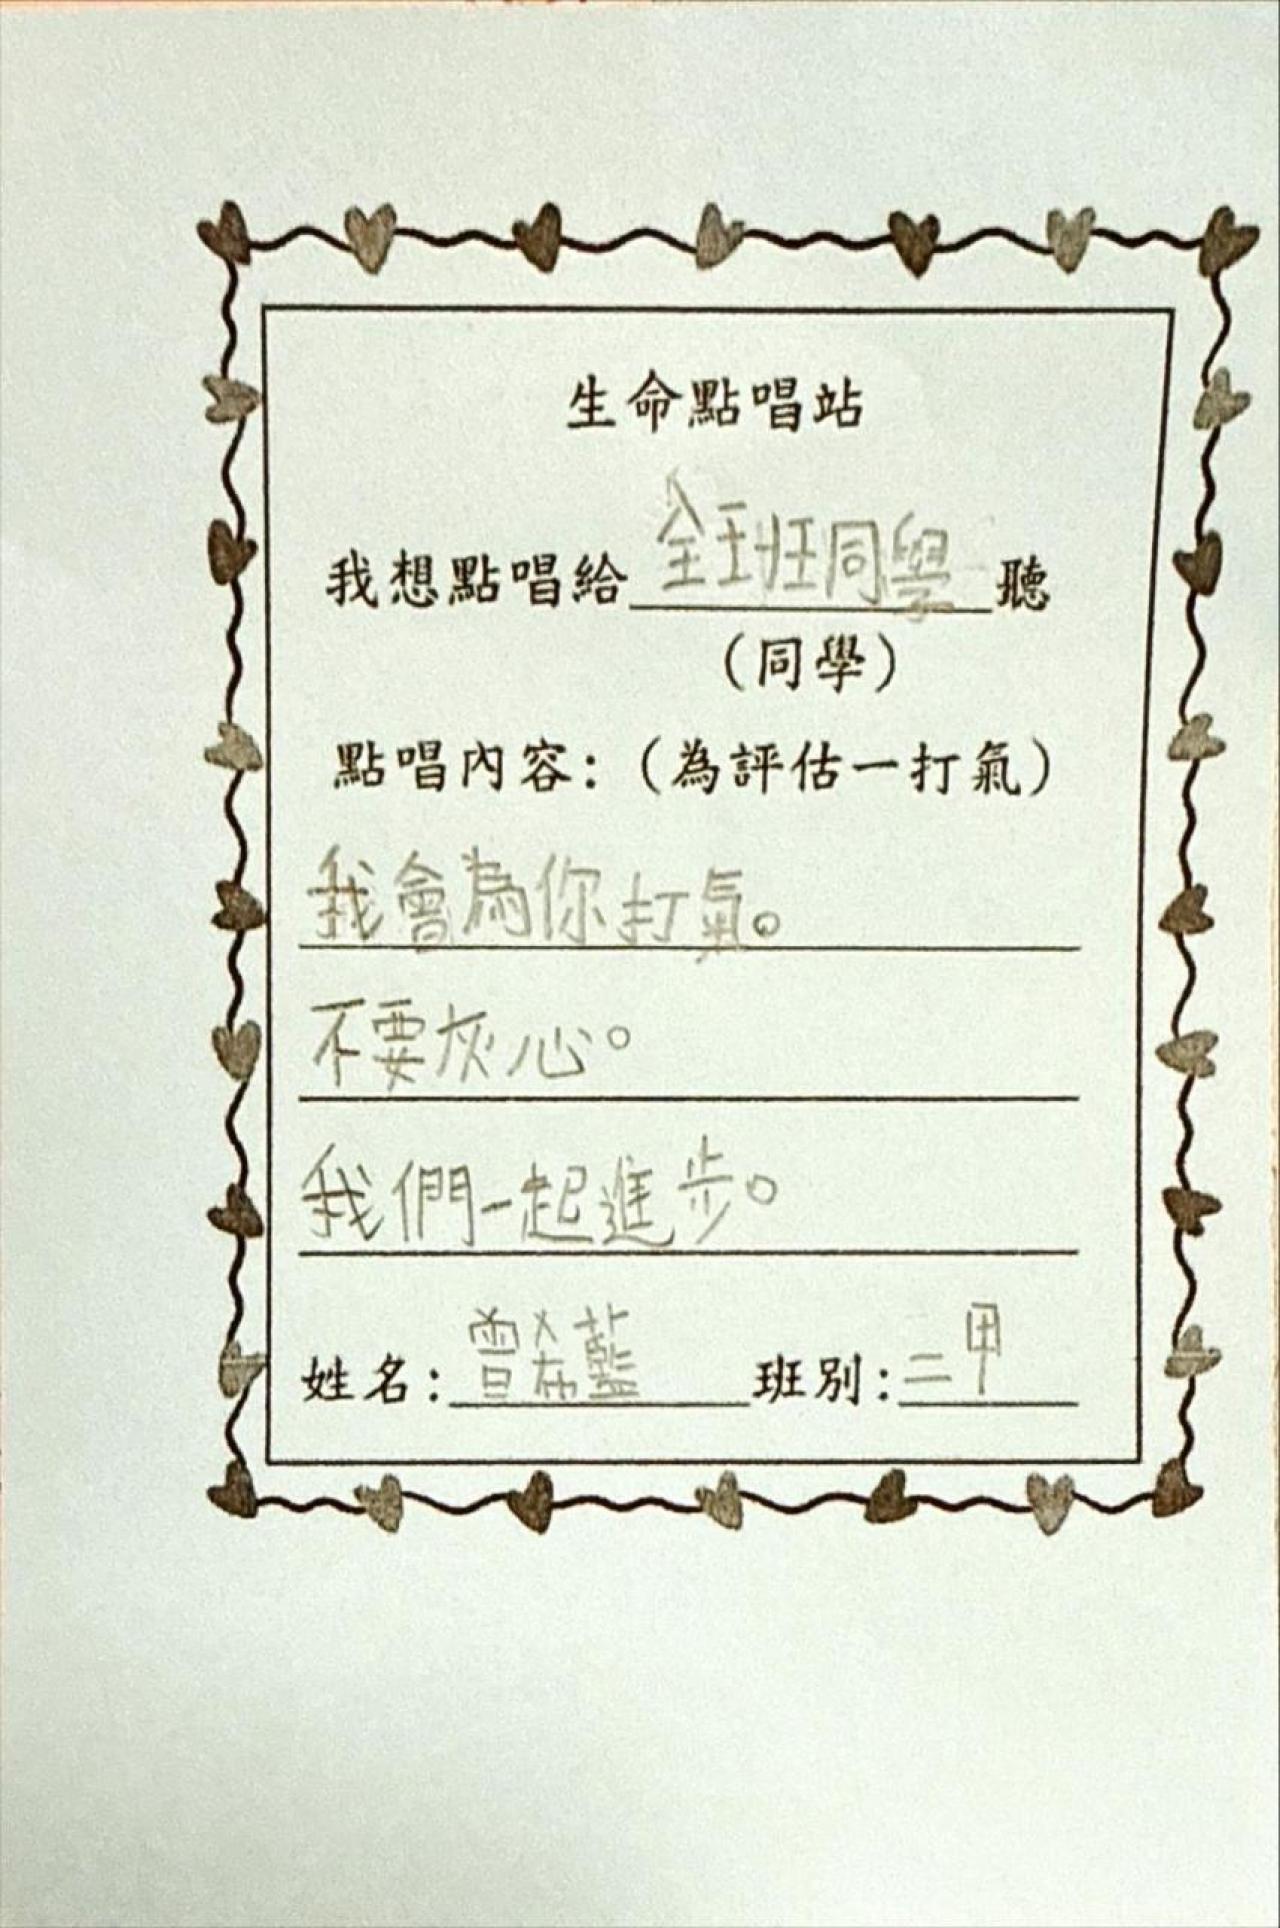 生命點唱站
我想點唱給全班同學聽
（同學）
點唱內容：（為評估一打氣）
我會為你打氣。
不要灰心。
我們一起進步。
姓名：曾希藍 班別：二甲